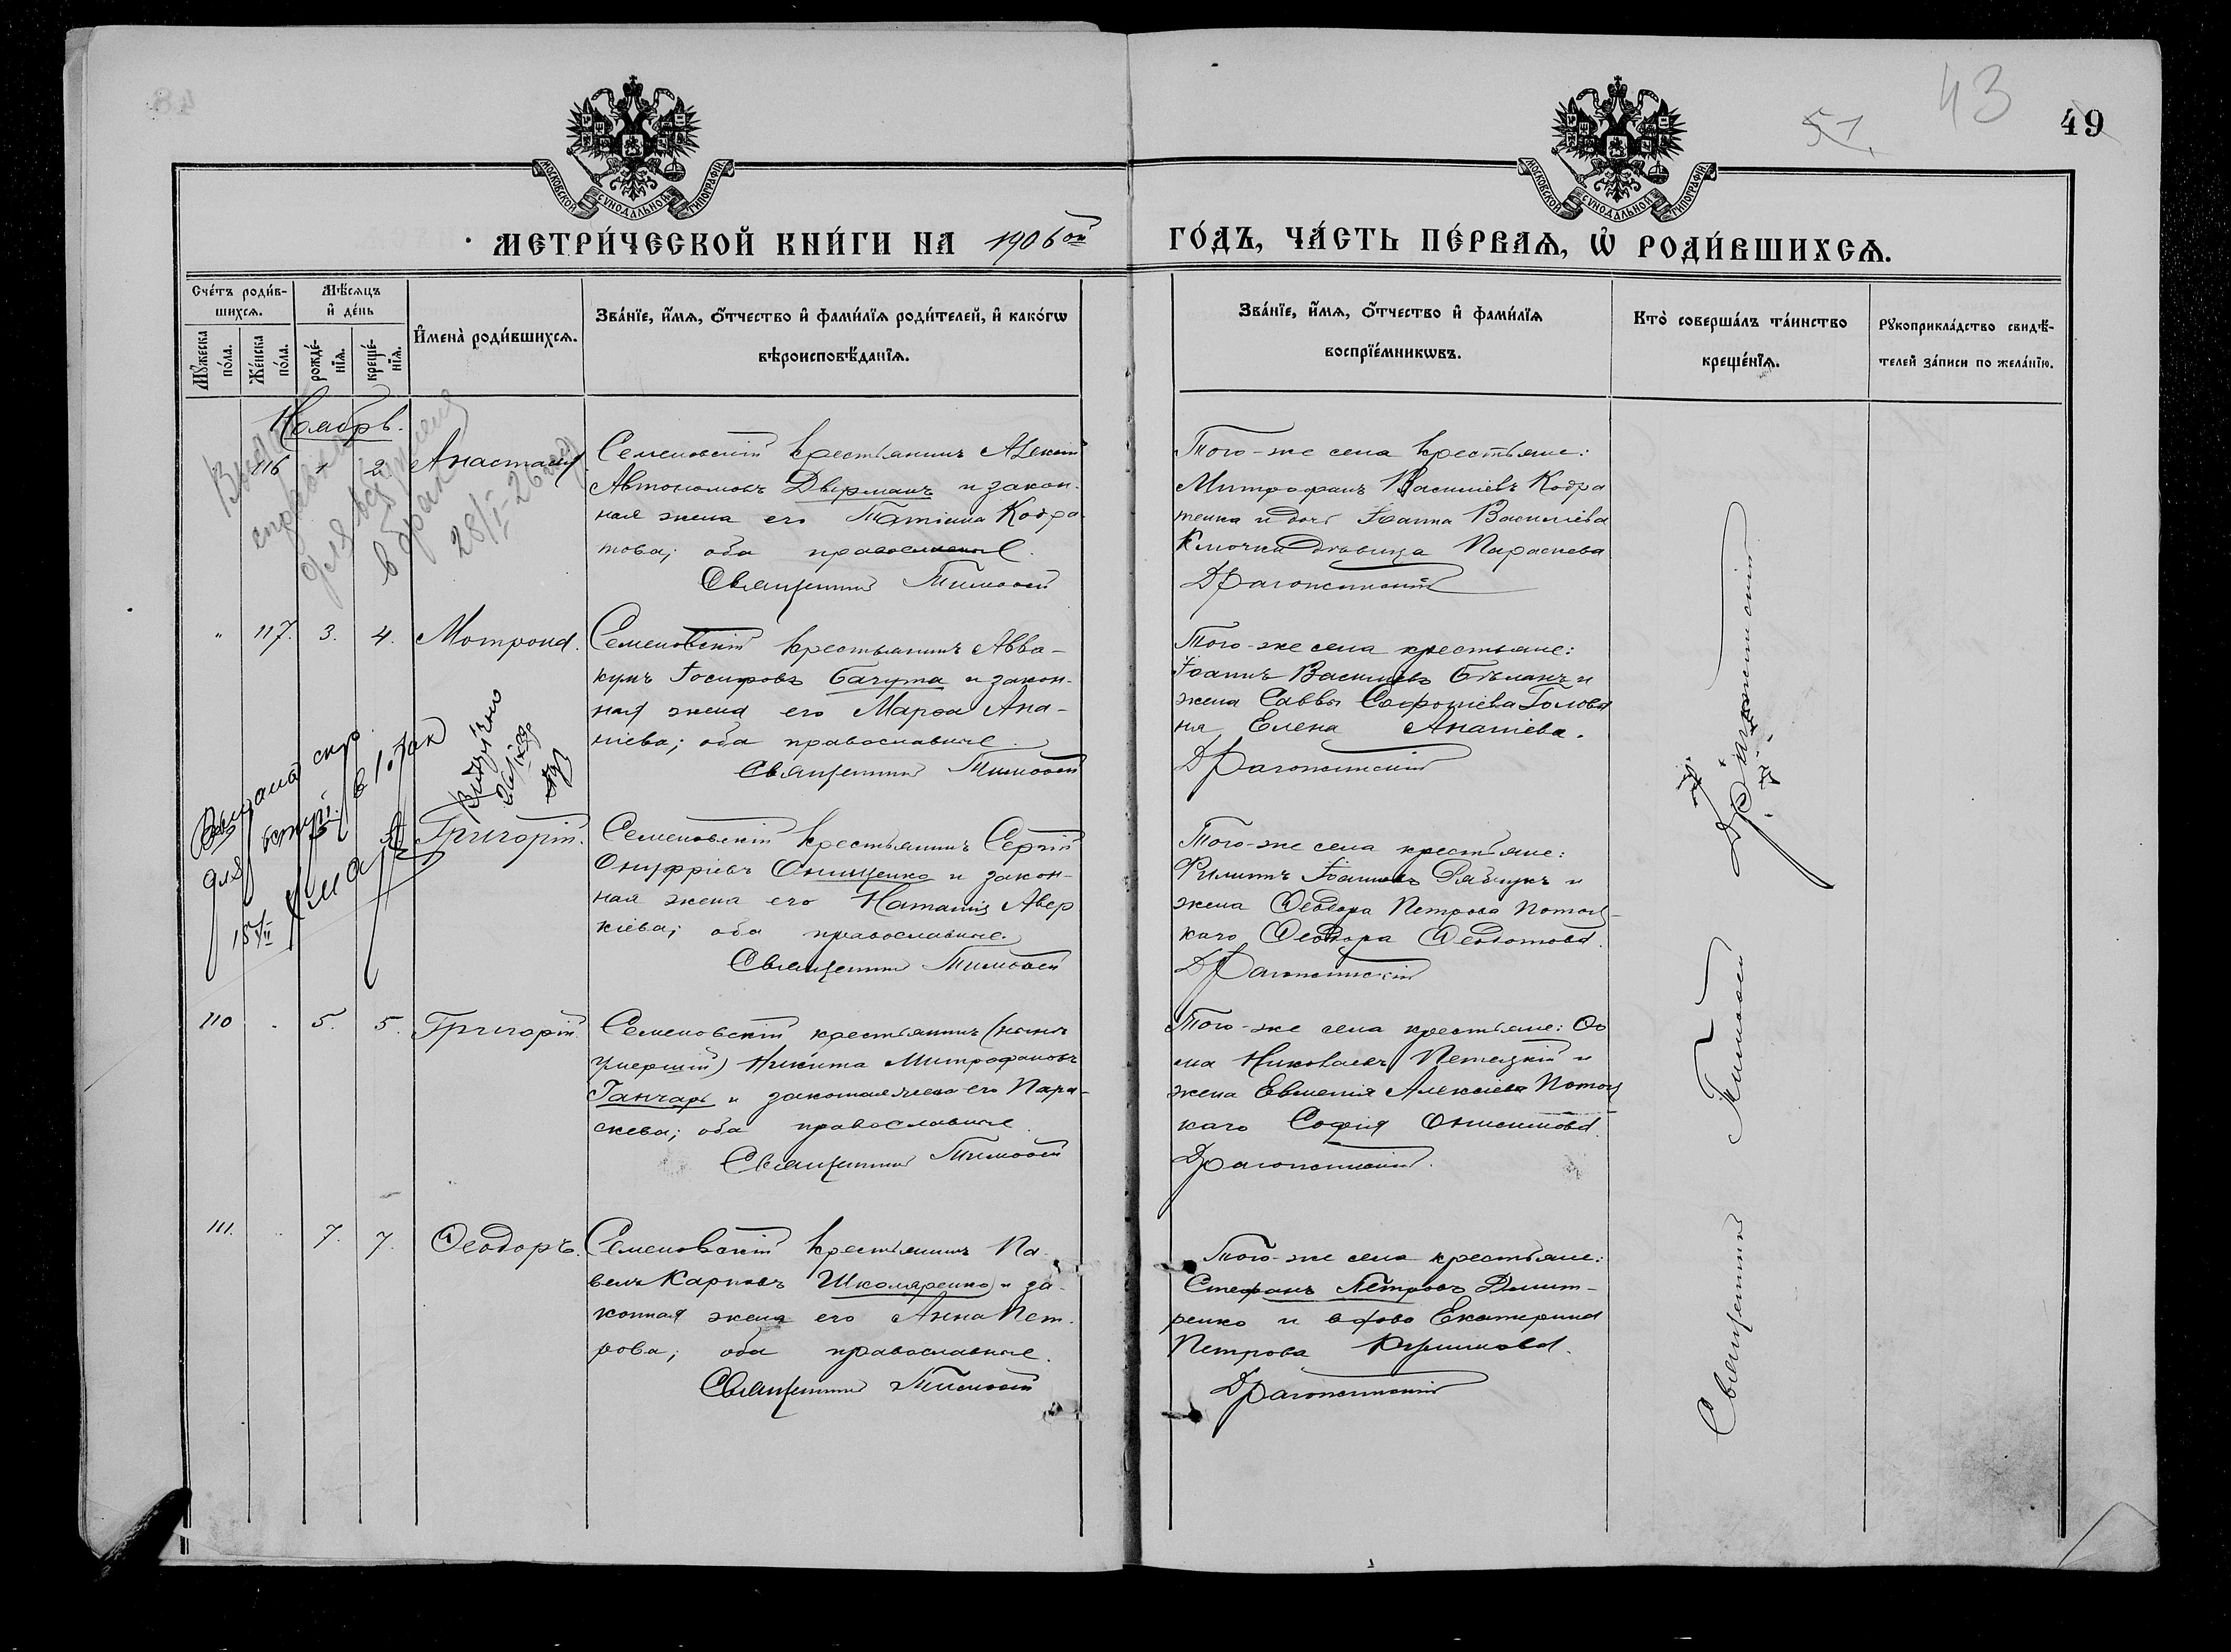 43
51
49
МОСКОВСКОЙ СУНОДАЛЬНОЙ ТИПОГРАФІИ
МОСКОВСКОЙ СУНОДАЛЬНОЙ ТИПОГРАФІИ
МЕТРИ́ЧЕСКОЙ КНИ́ГИ НА 1906ой
ГО́ДЪ, ЧА́СТЬ ПЕ́РВАѦ, Ѡ҆ РОДИ́ВШИХСѦ.
Сче́тъ роди́в-
шихсѧ.
Мꙋ́жеска по́ла.
Же́нска по́ла.
Мѣ́сѧцъ
и҆ де́нь
рожде́-
нїѧ.
креще́-
нїѧ.
И҆мена̀ роди́вшихсѧ.
Зва́нїе, и҆́мѧ, ѻ҆́тчество и҆ фами́лїѧ роди́телей, и҆ како́гѡ
вѣроисповѣ́данїѧ.
Зва́нїе, и҆́мѧ, ѻ҆́тчество и҆ фами́лїѧ
воспрїе́мникѡвъ.
Кто̀ соверша́лъ та́инство
креще́нїѧ.
Рꙋкоприкла́дство свидѣ́-
телей за́писи по жела́нїю.
Ноябрь.
116 1 2 Анастасія
Семеновскій крестьянинъ Алексій
Автономовъ Дверманъ и закон-
ная жена его Татіана Кодра
това; оба православные
Священникъ Тимофей
Того-же села крестьяне:
Митрофанъ Василіевъ Кодра
тенко и дочь Іоанна Василіева
девица Параскева
Драгожинскій
справка
для вступления
в брак
28/I-26 года
" 117. 3. 4. Мотрона.
Семеновскій крестьянинъ Авва-
кумъ Іосифовъ Бачута и закон-
ная жена его Марѳа Ана-
ніева; оба православные
Священникъ Тимофей
Того-же села крестьяне:
Іоаннъ Василіевъ Бѣланъ и
жена Саввы Софроніева Голова
ня Елена Ананіева.
Драгожинскій
Выдана спр.
для вступ. в брак
Григорій.
Семеновскій крестьянинъ Сергій
Онуфріевъ Онищенко и закон-
ная жена его Наталія Авер
кіева; оба православные.
Священникъ Тимофей
Того-же села крестьяне:
Филиппъ Іоанновъ Рябчукъ и
жена Ѳеодора Петрова Потоц-
каго Ѳеодора Ѳеодотова.
Драгожинскій
110 . 5. 5. Григорій
Семеновскій крестьянинъ (нынѣ
умершій) Никита Митрофановъ
Ганчаръ и законная жена его Пара-
скева; оба православные.
Священникъ Тимофей
Того-же села крестьяне: Ѳо
ма Николаевъ Петецкій и
жена Евменія Алексіева Потоц
каго Софія Онисимова.
Драгожинскій.
111. 7. 7. Ѳеодоръ.
Семеновскій крестьянинъ Па-
велъ Карповъ Школяренко и за-
конная жена его Анна Пет-
рова; оба православные.
Священникъ Тимофей
Того-же села крестьяне:
Стефанъ Петровъ Дмит-
ренко и вдова Екатерина
Петрова
Драгожинскій
Священникъ Тимофей Драгожинскій